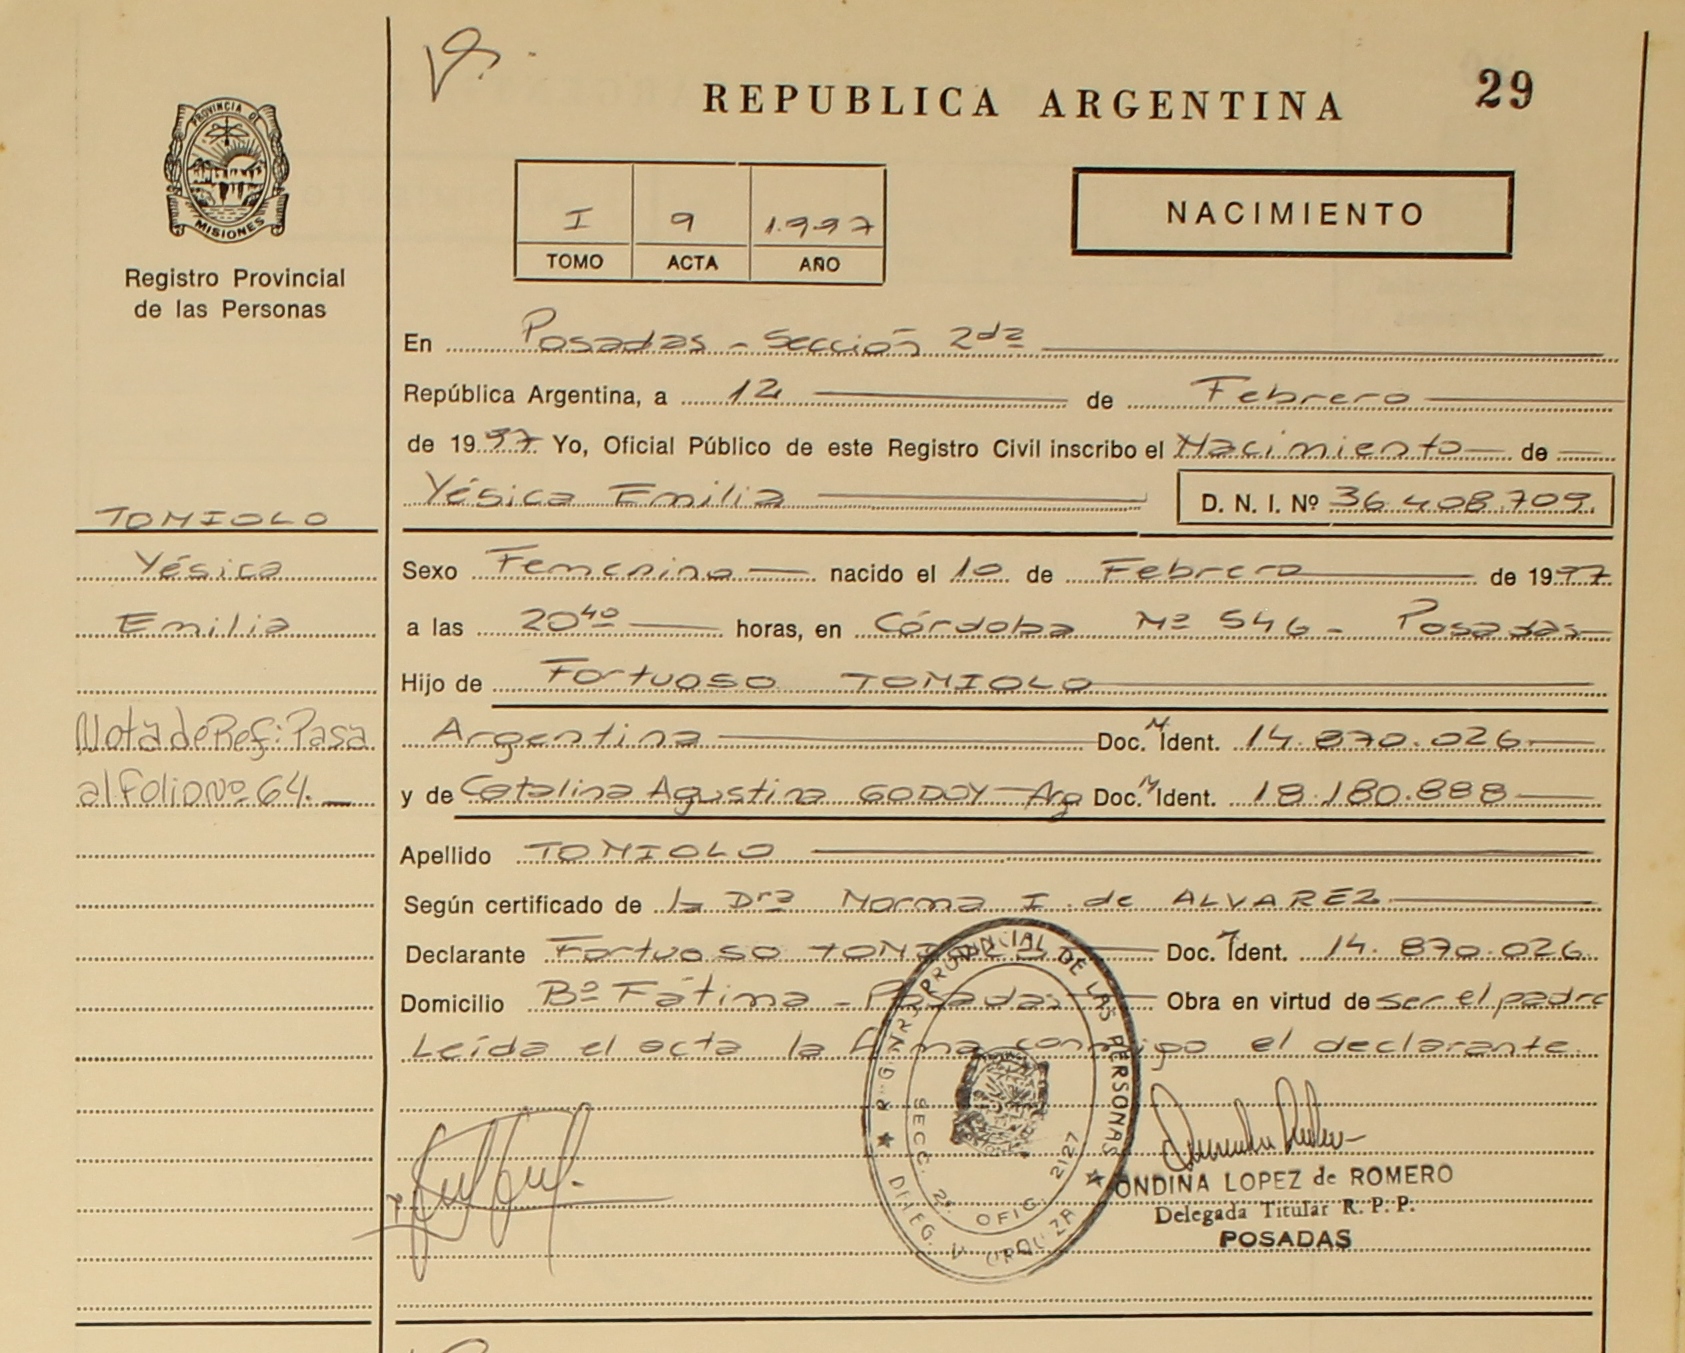 REPUBLICA ARGENTINA
29
PROVINCIA DE
MISIONES
Registro Provincial
de las Personas
I 9 1.997
TOMO ACTA AÑO
NACIMIENTO
En Posadas - Sección 2da
República Argentina, a 12 de Febrero
de 1997 Yo, Oficial Público de este Registro Civil inscribo el Nacimiento de
Yésica Emilia D. N. I. Nº 36.408.709.
TONIOLO
Yésica
Emilia
Nota de Ref: Pasa
al folio Nº 64.
Sexo Femenino nacido el 10 de Febrero de 1997
a las 20 40 horas, en Córdoba Nº 546 - Posadas
Hijo de Fortuoso TONIOLO
Argentina Doc. N Ident. 14.870.026
y de Catalina Agustina GODOY Arg Doc. N Ident. 18.180.888
Apellido TONIOLO
Según certificado de la Dra Norma I. de ALVAREZ
Declarante Fortuoso TONIOLO Doc. Ident. 14.870.026
Domicilio Bº Fátima - Posadas Obra en virtud de ser el padre
Leída el acta la firma conmigo el declarante.
REGISTRO PROVINCIAL DE LAS PERSONAS
SECC. 2ª. OFIC. 2127
DELEG. V. URQUIZA
ONDINA LOPEZ de ROMERO
Delegada Titular R. P. P.
POSADAS